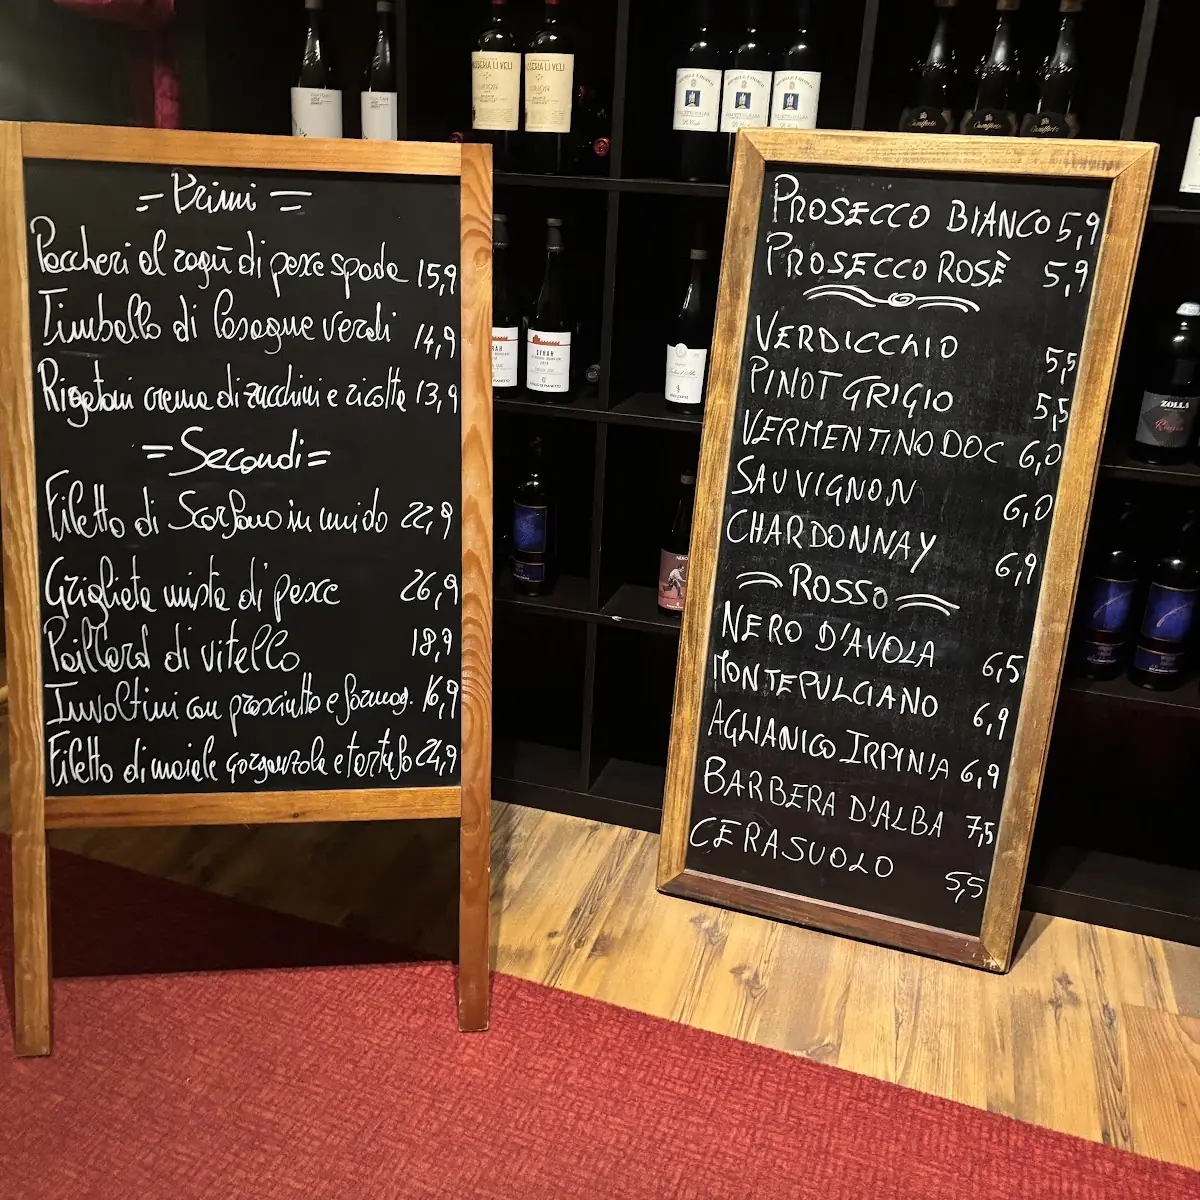 = Primi =
Paccheri al ragù di pesce spada 15,9
Timballo di lasagne verdi 14,9
Rigatoni crema di zucchini e ricotta 13,9
= Secondi =
Filetto di Scorfano in umido 22,9
Grigliata mista di pesce 26,9
Paillard di vitello 18,9
Involtini con prosciutto e formag. 16,9
Filetto di maiale gorgonzola e tartufo 24,9
PROSECCO BIANCO 5,9
PROSECCO ROSÈ 5,9
VERDICCHIO 5,5
PINOT GRIGIO 5,5
VERMENTINO DOC 6,0
SAUVIGNON 6,0
CHARDONNAY 6,9
ROSSO
NERO D'AVOLA 6,5
MONTEPULCIANO 6,9
AGLIANICO IRPINIA 6,9
BARBERA D'ALBA 7,5
CERASUOLO 5,5
MASSERIA LI VELI
ORION
SYRAH
ZOLLA